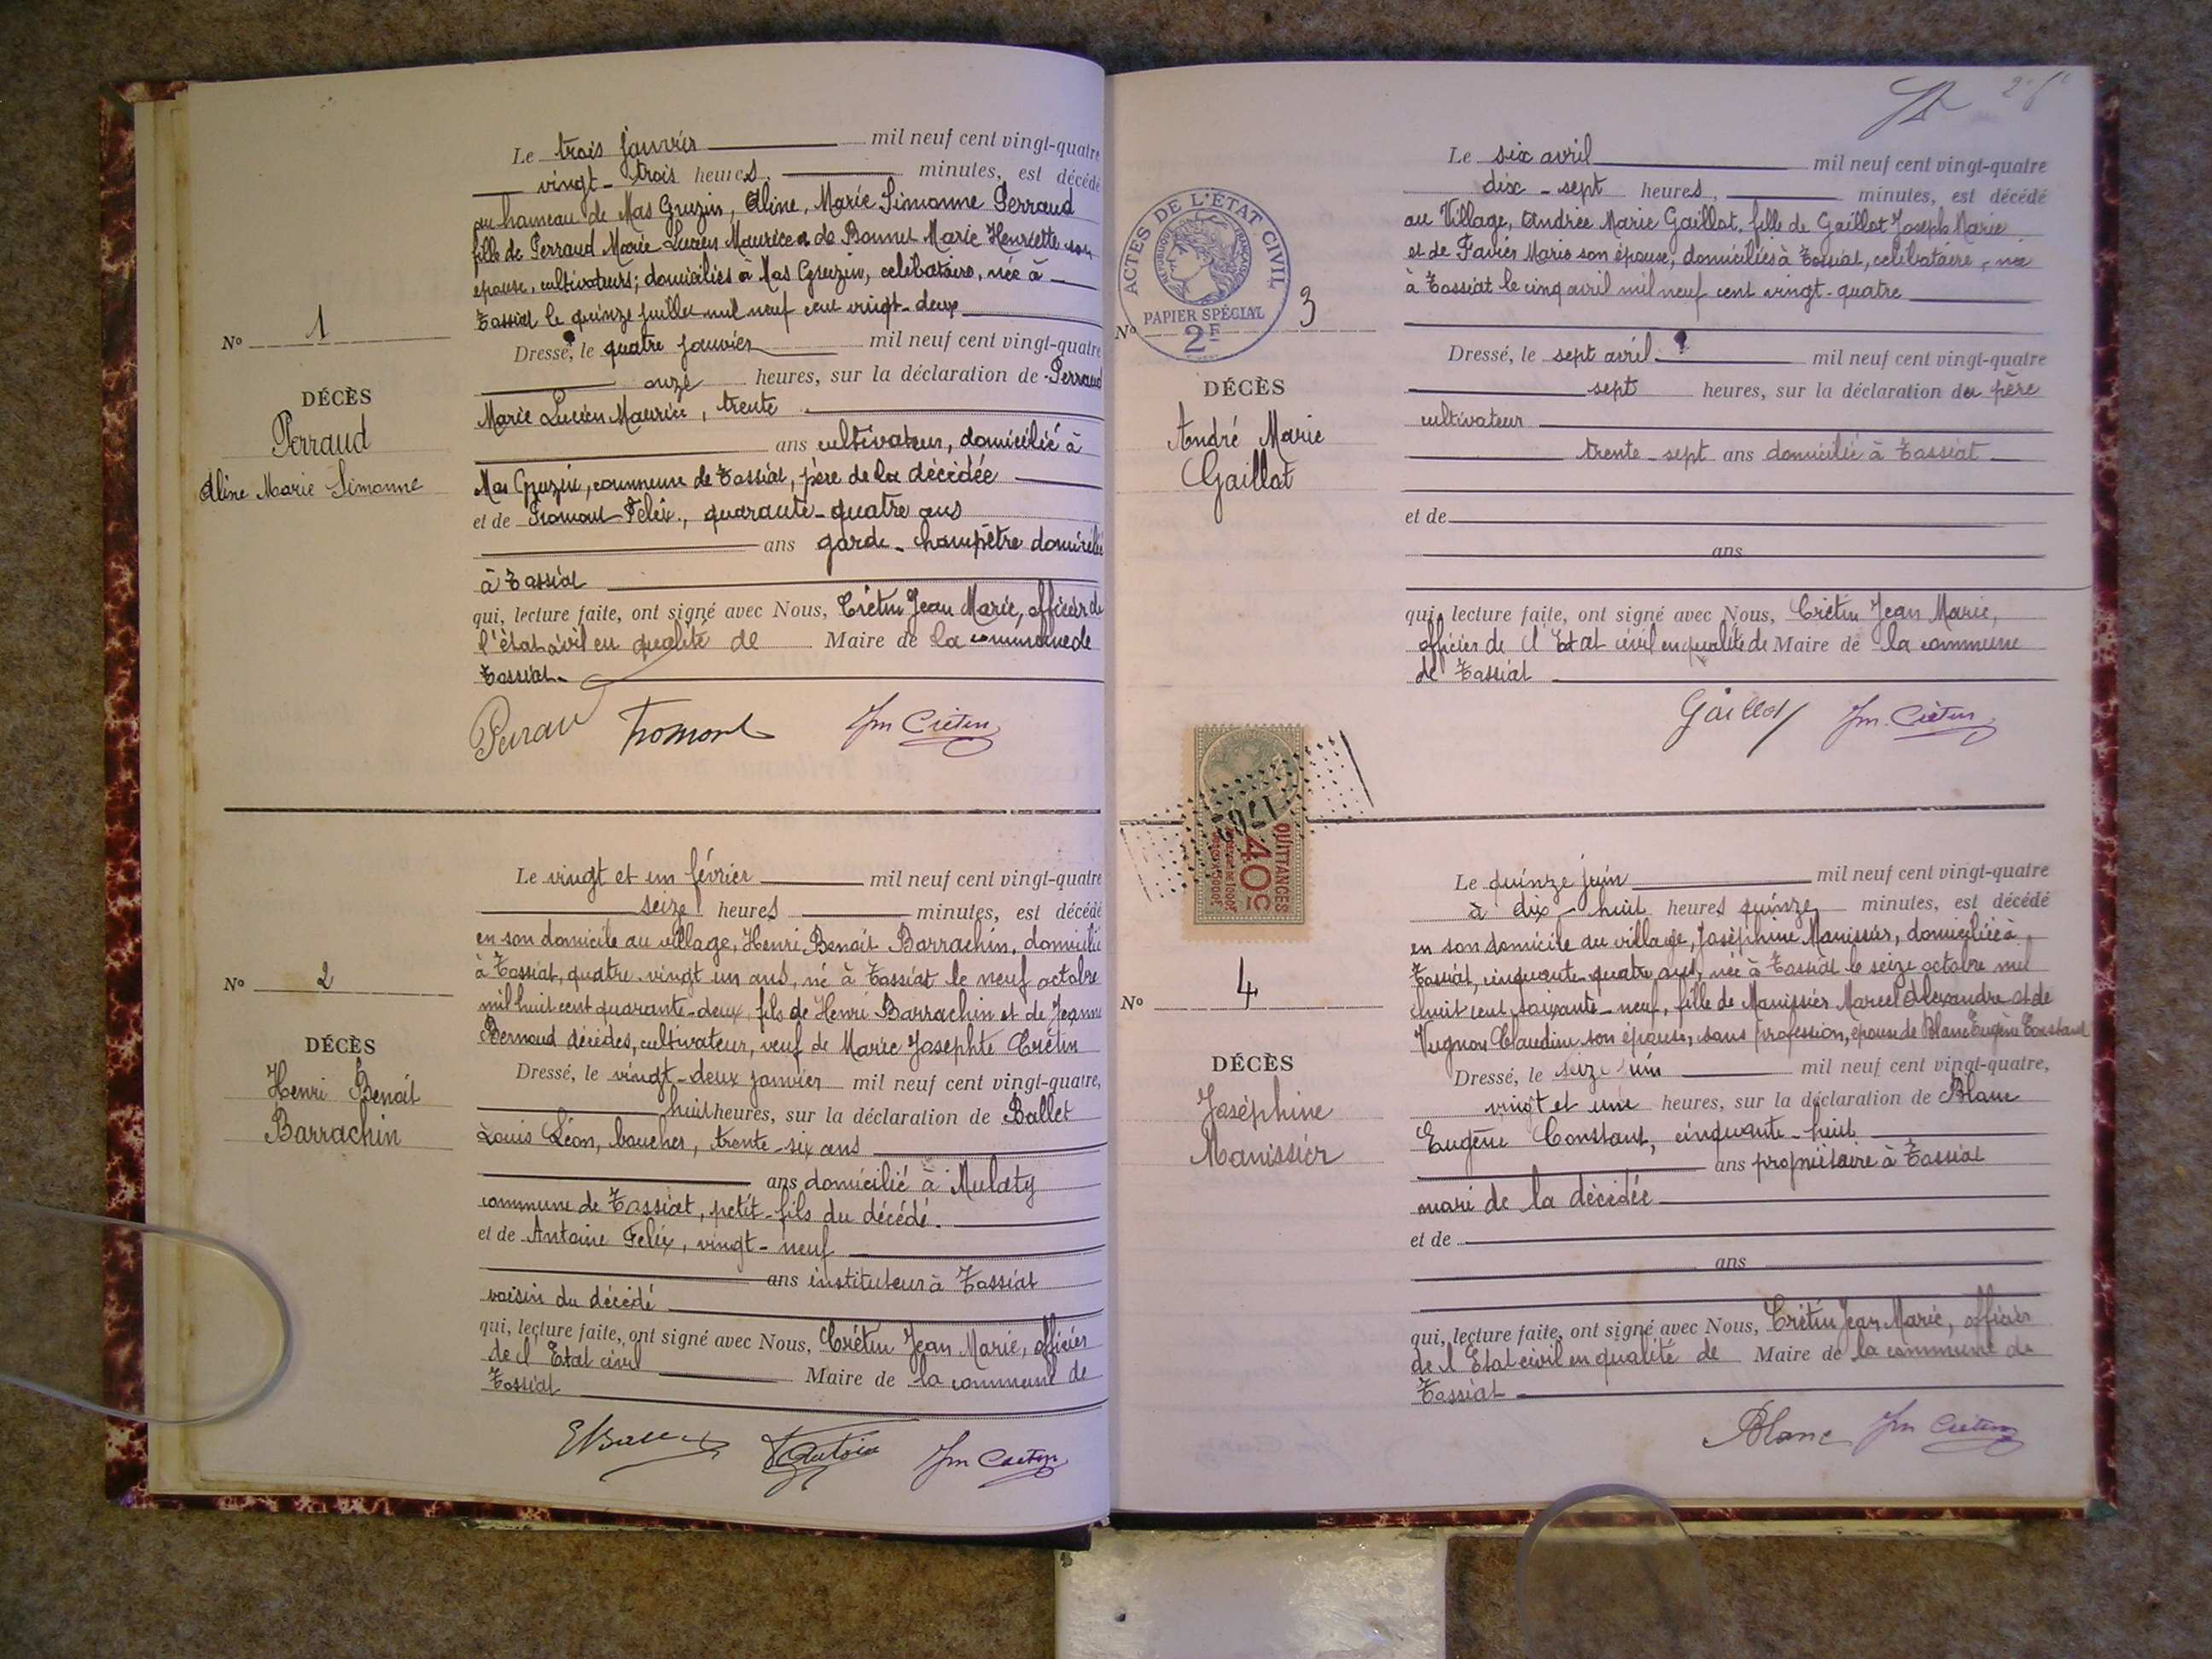 Le trois janvier mil neuf cent vingt-quatre
vingt-trois heures, minutes, est décédé
au hameau de Mas Gruzin, Aline, Marie Simonne Perraud
fille de Perraud Marie Lucien Maurice et de Bonnet Marie Henriette son
epouse, cultivateurs; domiciliés à Mas Gruzin, celibataire, née à
Tossiat le quinze juillet mil neuf cent vingt-deux
Nº 1
Dressé, le quatre janvier mil neuf cent vingt-quatre
onze heures, sur la déclaration de Perraud
DÉCÈS
Perraud
Aline Marie Simonne
Marie Lucien Maurice, trente
ans cultivateur, domicilié à
Mas Gruzin, commune de Tossiat, père de la décédée
et de Fromont Félix, quarante-quatre ans
ans garde-champêtre domicilié
à Tossiat
qui, lecture faite, ont signé avec Nous, Crétin Jean Marie, officier de
l'état civil en qualité de Maire de la commune de
Tossiat.
Perrau Fromont Jm Crétin
Le vingt et un février mil neuf cent vingt-quatre
seize heures minutes, est décédé
en son domicile au village, Henri Benoit Barrachin, domicilié
à Tossiat, quatre-vingt un ans, né à Tossiat le neuf octobre
mil huit cent quarante-deux, fils de Henri Barrachin et de Jeanne
Bernoud décédés, cultivateur, veuf de Marie Josephte Crétin
Nº 2
DÉCÈS
Henri Benoit
Barrachin
Dressé, le vingt-deux janvier mil neuf cent vingt-quatre,
huit heures, sur la déclaration de Ballet
Louis Léon, boucher, trente-six ans
ans domicilié à Mulaty
commune de Tossiat, petit-fils du décédé.
et de Antoine Felix, vingt-neuf
ans instituteur à Tossiat
voisin du décédé
qui, lecture faite, ont signé avec Nous, Crétin Jean Marie, officier
de l'Etat civil Maire de la commune de
Tossiat
Jm Crétin
Le six avril mil neuf cent vingt-quatre
dix-sept heures, minutes, est décédé
au Village, Andrée Marie Gaillot, fille de Gaillot Joseph Marie
et de Favier Marie son épouse, domiciliés à Tossiat, celibataire, née
à Tossiat le cinq avril mil neuf cent vingt-quatre
ACTES DE L'ÉTAT CIVIL
RÉPUBLIQUE FRANÇAISE
PAPIER SPÉCIAL
2F
Nº 3
DÉCÈS
André Marie
Gaillot
Dressé, le sept avril mil neuf cent vingt-quatre
sept heures, sur la déclaration du père
cultivateur
trente-sept ans domicilié à Tossiat
et de
ans
qui, lecture faite, ont signé avec Nous, Crétin Jean Marie,
officier de l'Etat civil en qualité de Maire de la commune
de Tossiat
Gaillot Jm. Crétin
QUITTANCES
40c
Le quinze juin mil neuf cent vingt-quatre
à dix-huit heures quinze minutes, est décédé
en son domicile au village, Joséphine Manissier, domiciliée à
Tossiat, cinquante-quatre ans, née à Tossiat le seize octobre mil
huit cent soixante-neuf, fille de Manissier Marcel Alexandre et de
Vugnon Claudine son épouse, sans profession, epouse de Blanc Eugène Constant
Nº 4
DÉCÈS
Joséphine
Manissier
Dressé, le seize juin mil neuf cent vingt-quatre,
vingt et une heures, sur la déclaration de Blanc
Eugène Constant, cinquante-huit
ans propriétaire à Tossiat
mari de la décédée
et de
ans
qui, lecture faite, ont signé avec Nous, Crétin Jean Marie, officier
de l'Etat civil en qualité de Maire de la commune de
Tossiat
Blanc Jm Crétin